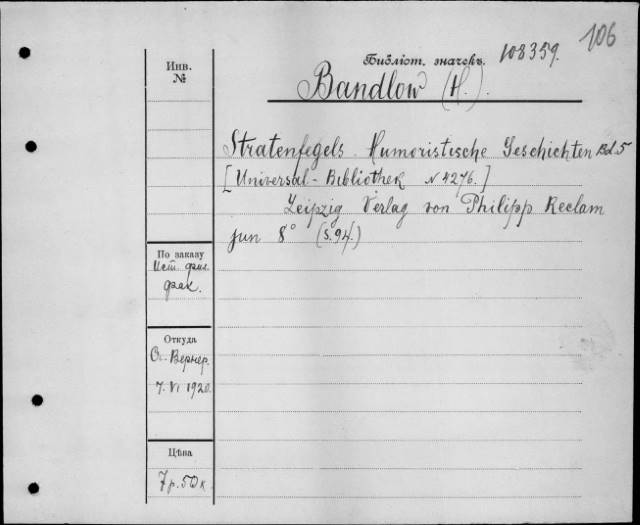 106
Библіот. значекъ. 108359.
Инв.
№
Bandlow (H.).
Stratenfegels. Humoristische Geschichten Bd. 5
[Universal-Bibliothek N 4276.]
Leipzig Verlag von Philipp Reclam
jun 8° (S. 94.)
По заказу
Ист. фил.
фак.
Откуда
От Вернер.
7. VI 1920.
Цѣна
7 р. 50 к.